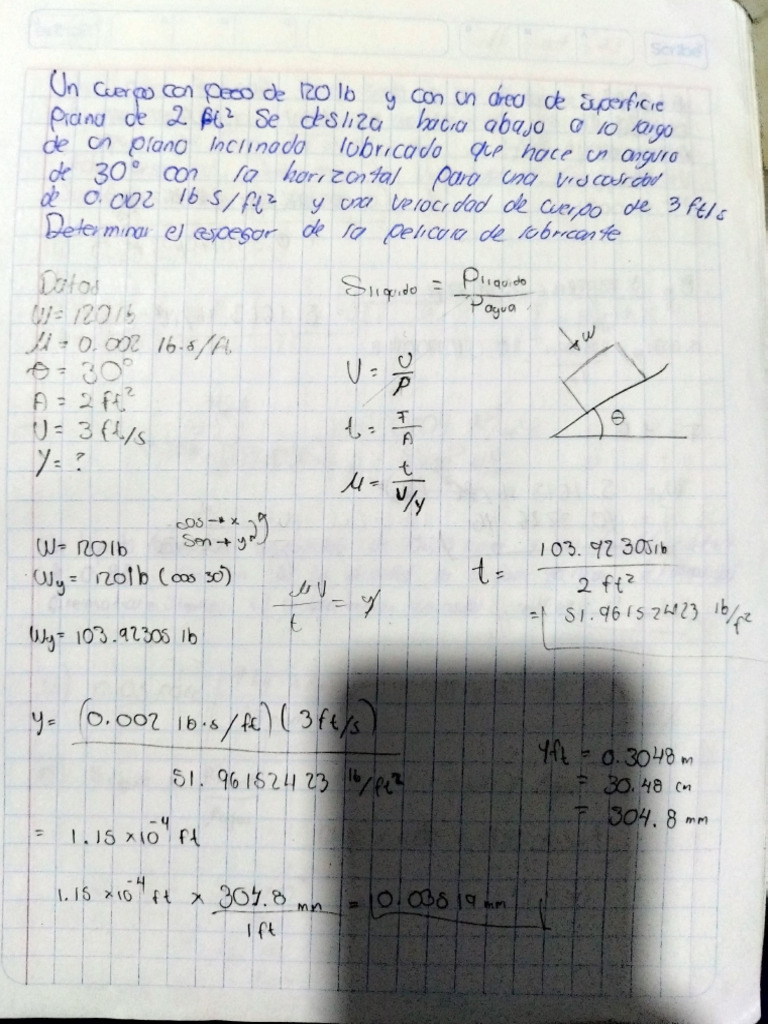 Scribe
Un cuerpo con peso de 120 lb y con un área de superficie
plana de 2 ft² se desliza hacia abajo a lo largo
de un plano inclinado lubricado que hace un angulo
de 30° con la horizontal para una viscosidad
de 0.002 lb s/ft² y una velocidad de cuerpo de 3 ft/s
Determinar el espesor de la pelicula de lubricante
Datos
W = 120 lb
μ = 0.002 lb·s/ft
θ = 30°
A = 2 ft²
U = 3 ft/s
Y = ?
S liquido = P liquido / P agua
V = U / P
t = F / A
μ = t / V/y
W
θ
W = 120 lb
cos → x
sen → y
Wy = 120 lb (cos 30°)
Wy = 103.92305 lb
μV / t = y
t = 103.92305 lb / 2 ft²
= 51.961524423 lb/f²
y = (0.002 lb·s/ft) (3 ft/s) / 51.961524423 lb/ft²
= 1.15 x10⁻⁴ ft
1 ft = 0.3048 m
= 30.48 cm
= 304.8 mm
1.15 x10⁻⁴ ft x 304.8 mm / 1 ft = 0.03519 mm